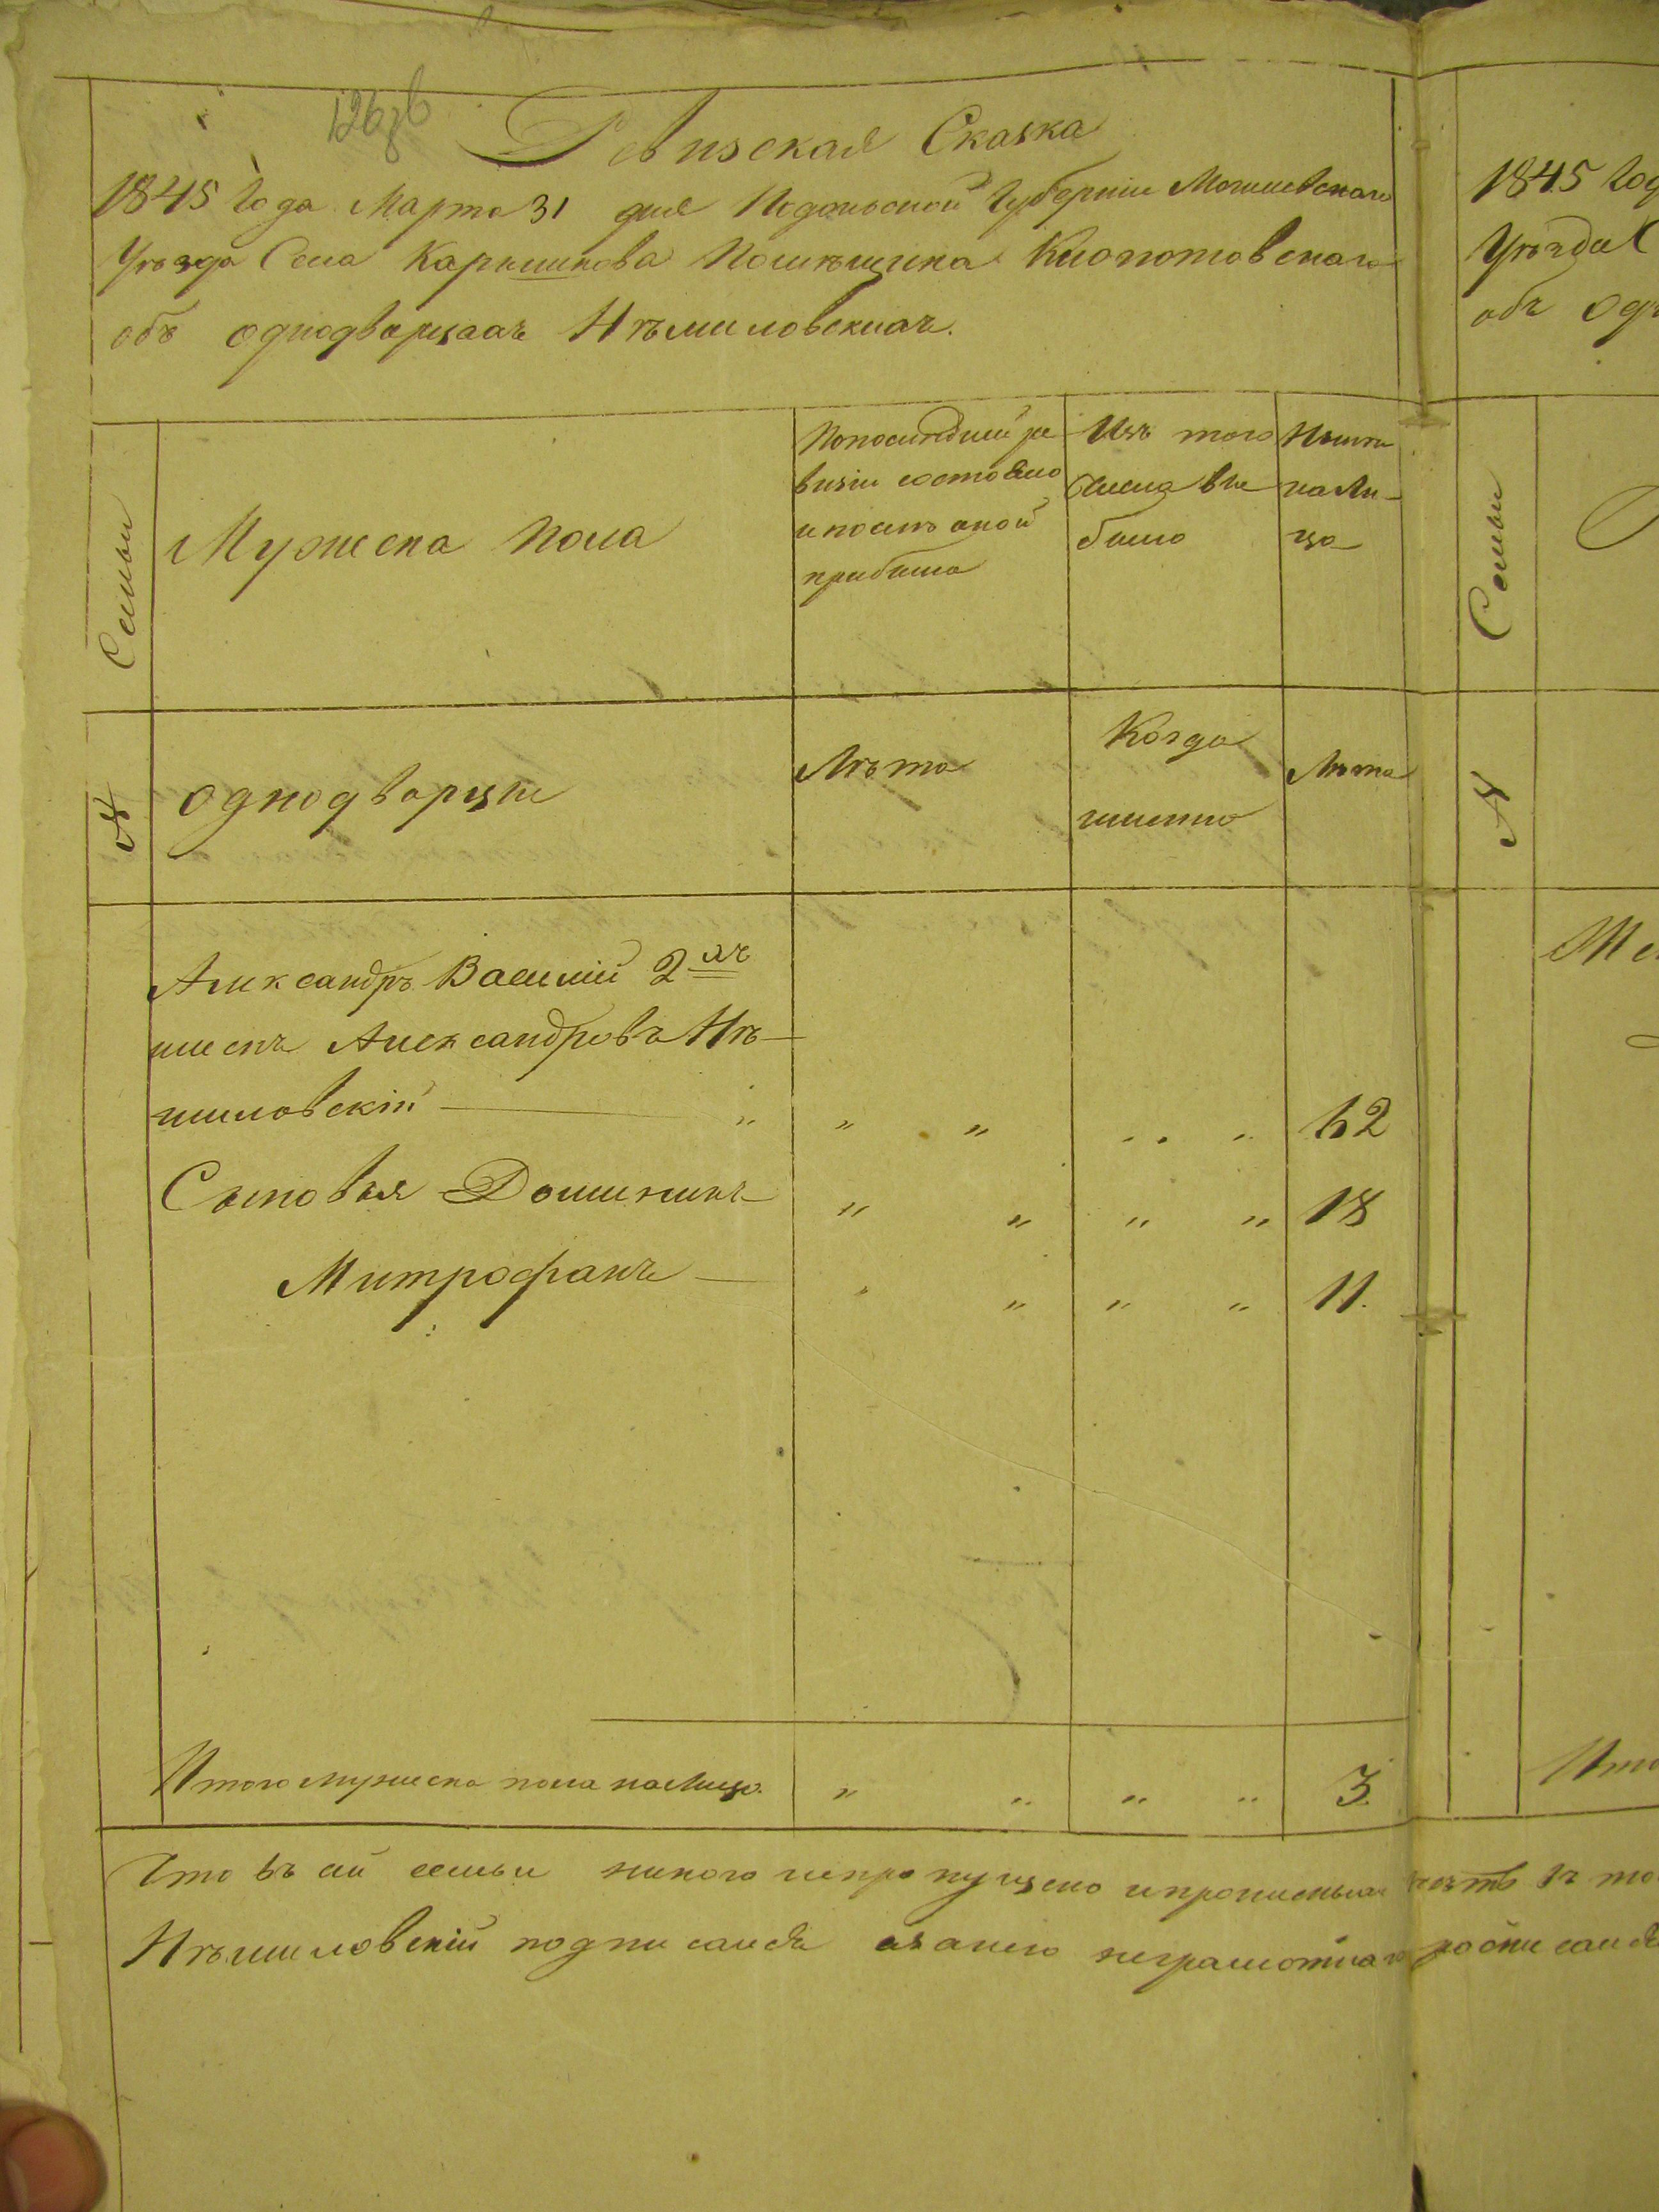 126об
Ревизская Сказка
1845 Года Марта 31 дня Подольской Губерніи Могилевскаго
Уѣзда Села Карышкова Помѣщика Клопотовскаго
объ однодворцахъ Нѣмиловскихъ.
Семьи
Мужеска пола
Попослѣдней ре
визіи состояло
и послѣ оной
прибыло
Изъ того
числа вы
было
Нынѣ
нали-
цо
№
однодворцы
Лѣта
Когда
имянно
Лѣта
Александръ Василій 2хъ
именъ Александровъ Нѣ-
миловскій 62
Сыновья Доминикъ 18
Митрофанъ 11.
Итого мужеска пола налицо. 3.
Что въ сей семьи никого непропущено
Нѣмиловскій подписался азанего неграмотнаго росписался
1845 Год
Уѣзда С
объ одн
Семьи
№
Итог